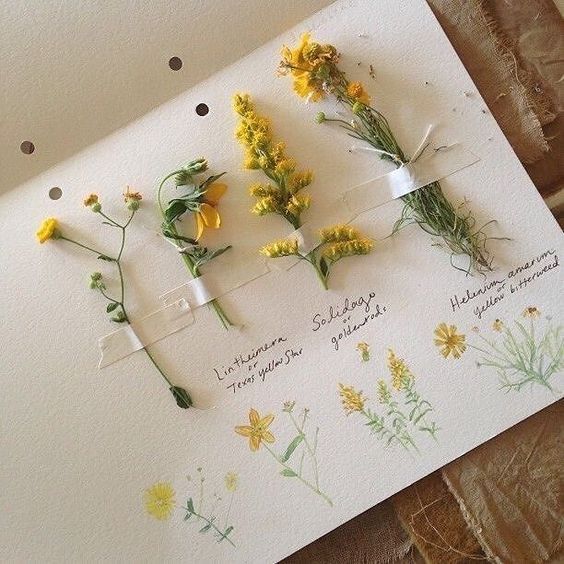 Lintheimera
or
Texas Yellow Star
Solidago
or
goldenrods
Helenium amarum
or
yellow bitterweed